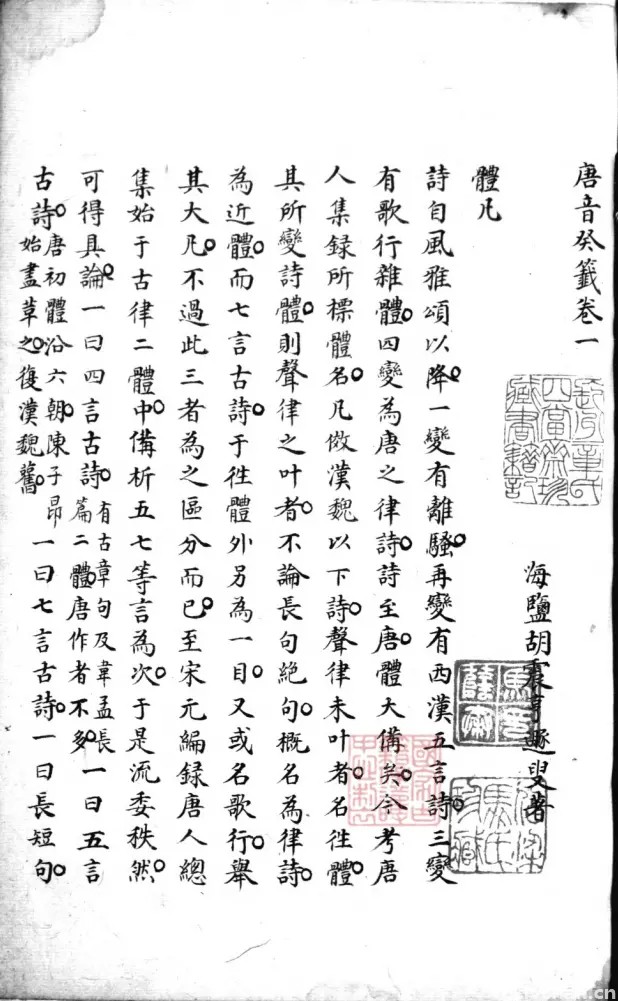 唐音癸籤卷一
長洲章氏
四當齋珍
藏書籍記
海鹽胡震亨遯叟著
體凡
詩自風雅頌以降。一變有離騷。再變有西漢五言詩。三變
有歌行雜體。四變為唐之律詩。詩至唐。體大備矣。今考唐
人集錄所標體名。凡傚漢魏以下詩。聲律未叶者。名徃體。
其所變詩體。則聲律之叶者。不論長句絕句。概名為律詩。
為近體。而七言古詩。于徃體外另為一目。又或名歌行。舉
其大凡。不過此三者為之區分而已。至宋元編錄唐人總
集始于古律二體中。備析五七等言為次。于是流委秩然。
可得具論。一曰四言古詩。有古章句及韋孟長篇二體。唐作者不多。一曰五言
古詩。唐初體沿六朝。陳子昂始盡革之。復漢魏舊。一曰七言古詩。一曰長短句。